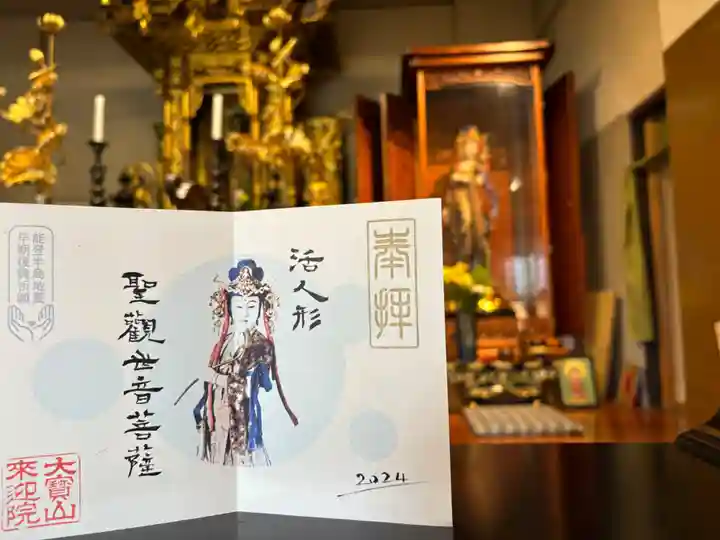 奉拝
活人形
聖觀世音菩薩
能登半島地震
早期復興祈願
大寶山
來迎院
2024